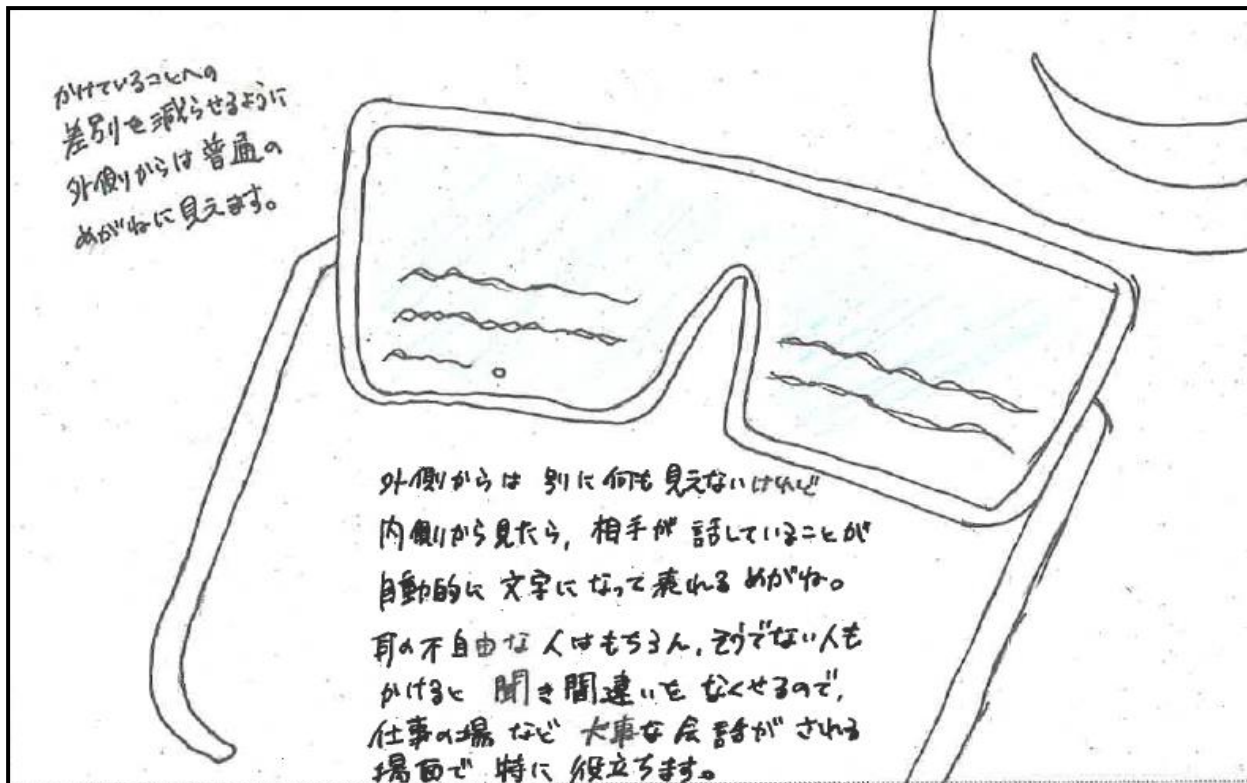 かけていることへの
差別を減らせるように
外側からは普通の
めがねに見えます。
外側からは 別に何も見えないけれど
内側から見たら, 相手が話していることが
自動的に文字になって表れるめがね。
耳の不自由な人はもちろん, そうでない人も
かけると 聞き間違いを なくせるので,
仕事の場など 大事な会話がされる
場面で 特に役立ちます。